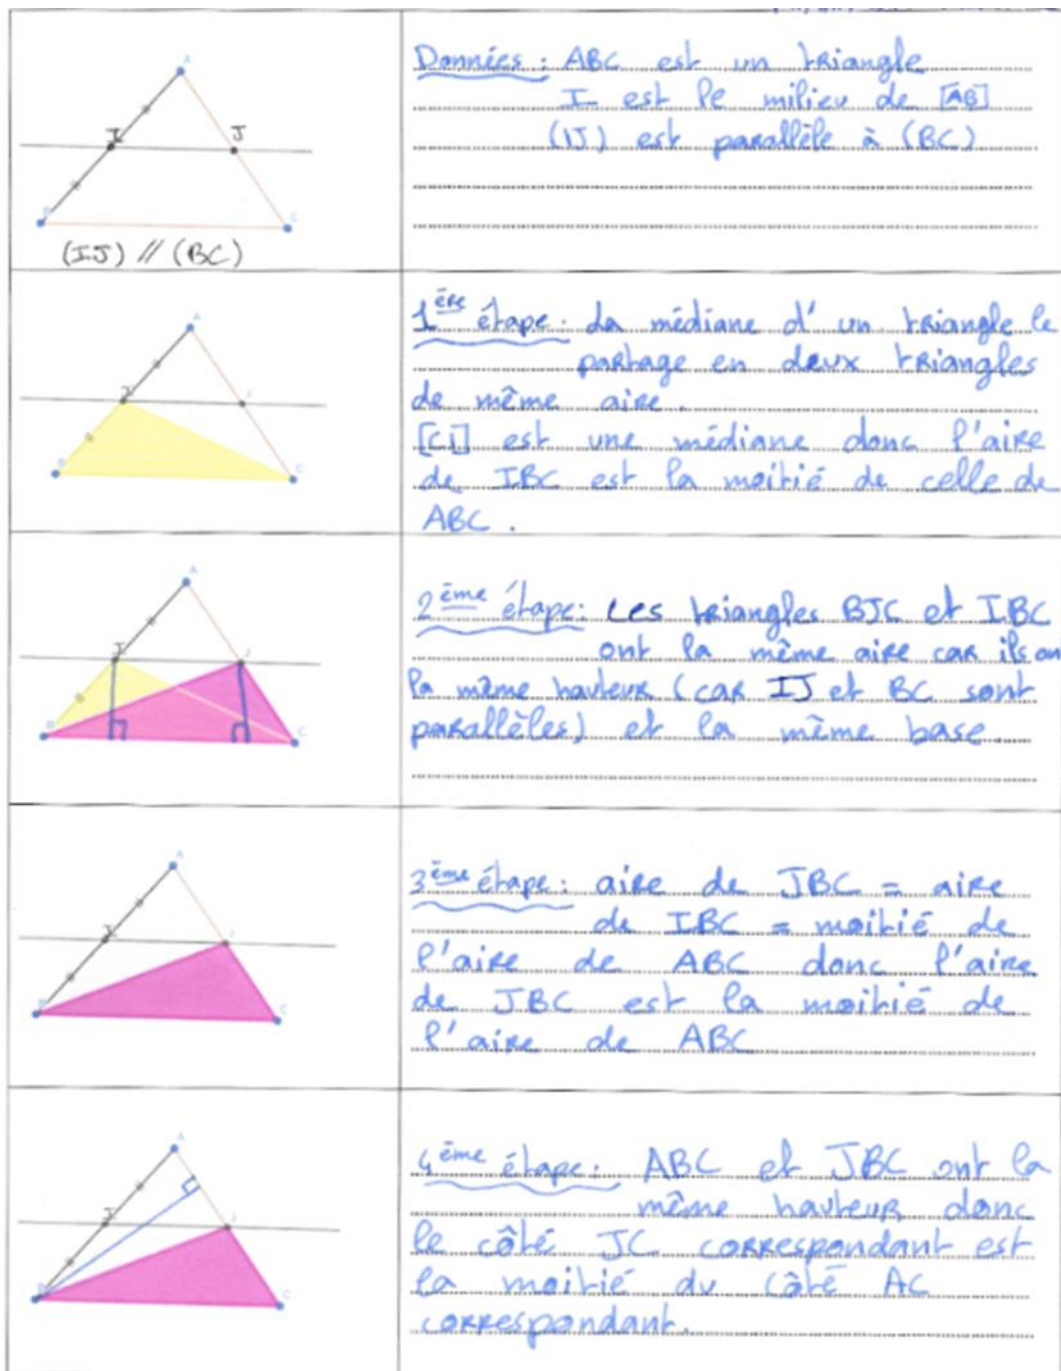 A
I
J
B
C
(IJ) // (BC)
Données : ABC est un triangle
I est le milieu de [AB]
(IJ) est parallèle à (BC)
A
I
J
B
C
1ère étape : La médiane d'un triangle le
partage en deux triangles
de même aire.
[CI] est une médiane donc l'aire
de IBC est la moitié de celle de
ABC.
A
I
J
B
C
2ème étape : Les triangles BJC et IBC
ont la même aire car ils on
la même hauteur (car IJ et BC sont
parallèles) et la même base.
A
I
J
B
C
3ème étape : aire de JBC = aire
de IBC = moitié de
l'aire de ABC donc l'aire
de JBC est la moitié de
l'aire de ABC
A
I
J
B
C
4ème étape : ABC et JBC ont la
même hauteur donc
le côté JC correspondant est
la moitié du côté AC
correspondant.